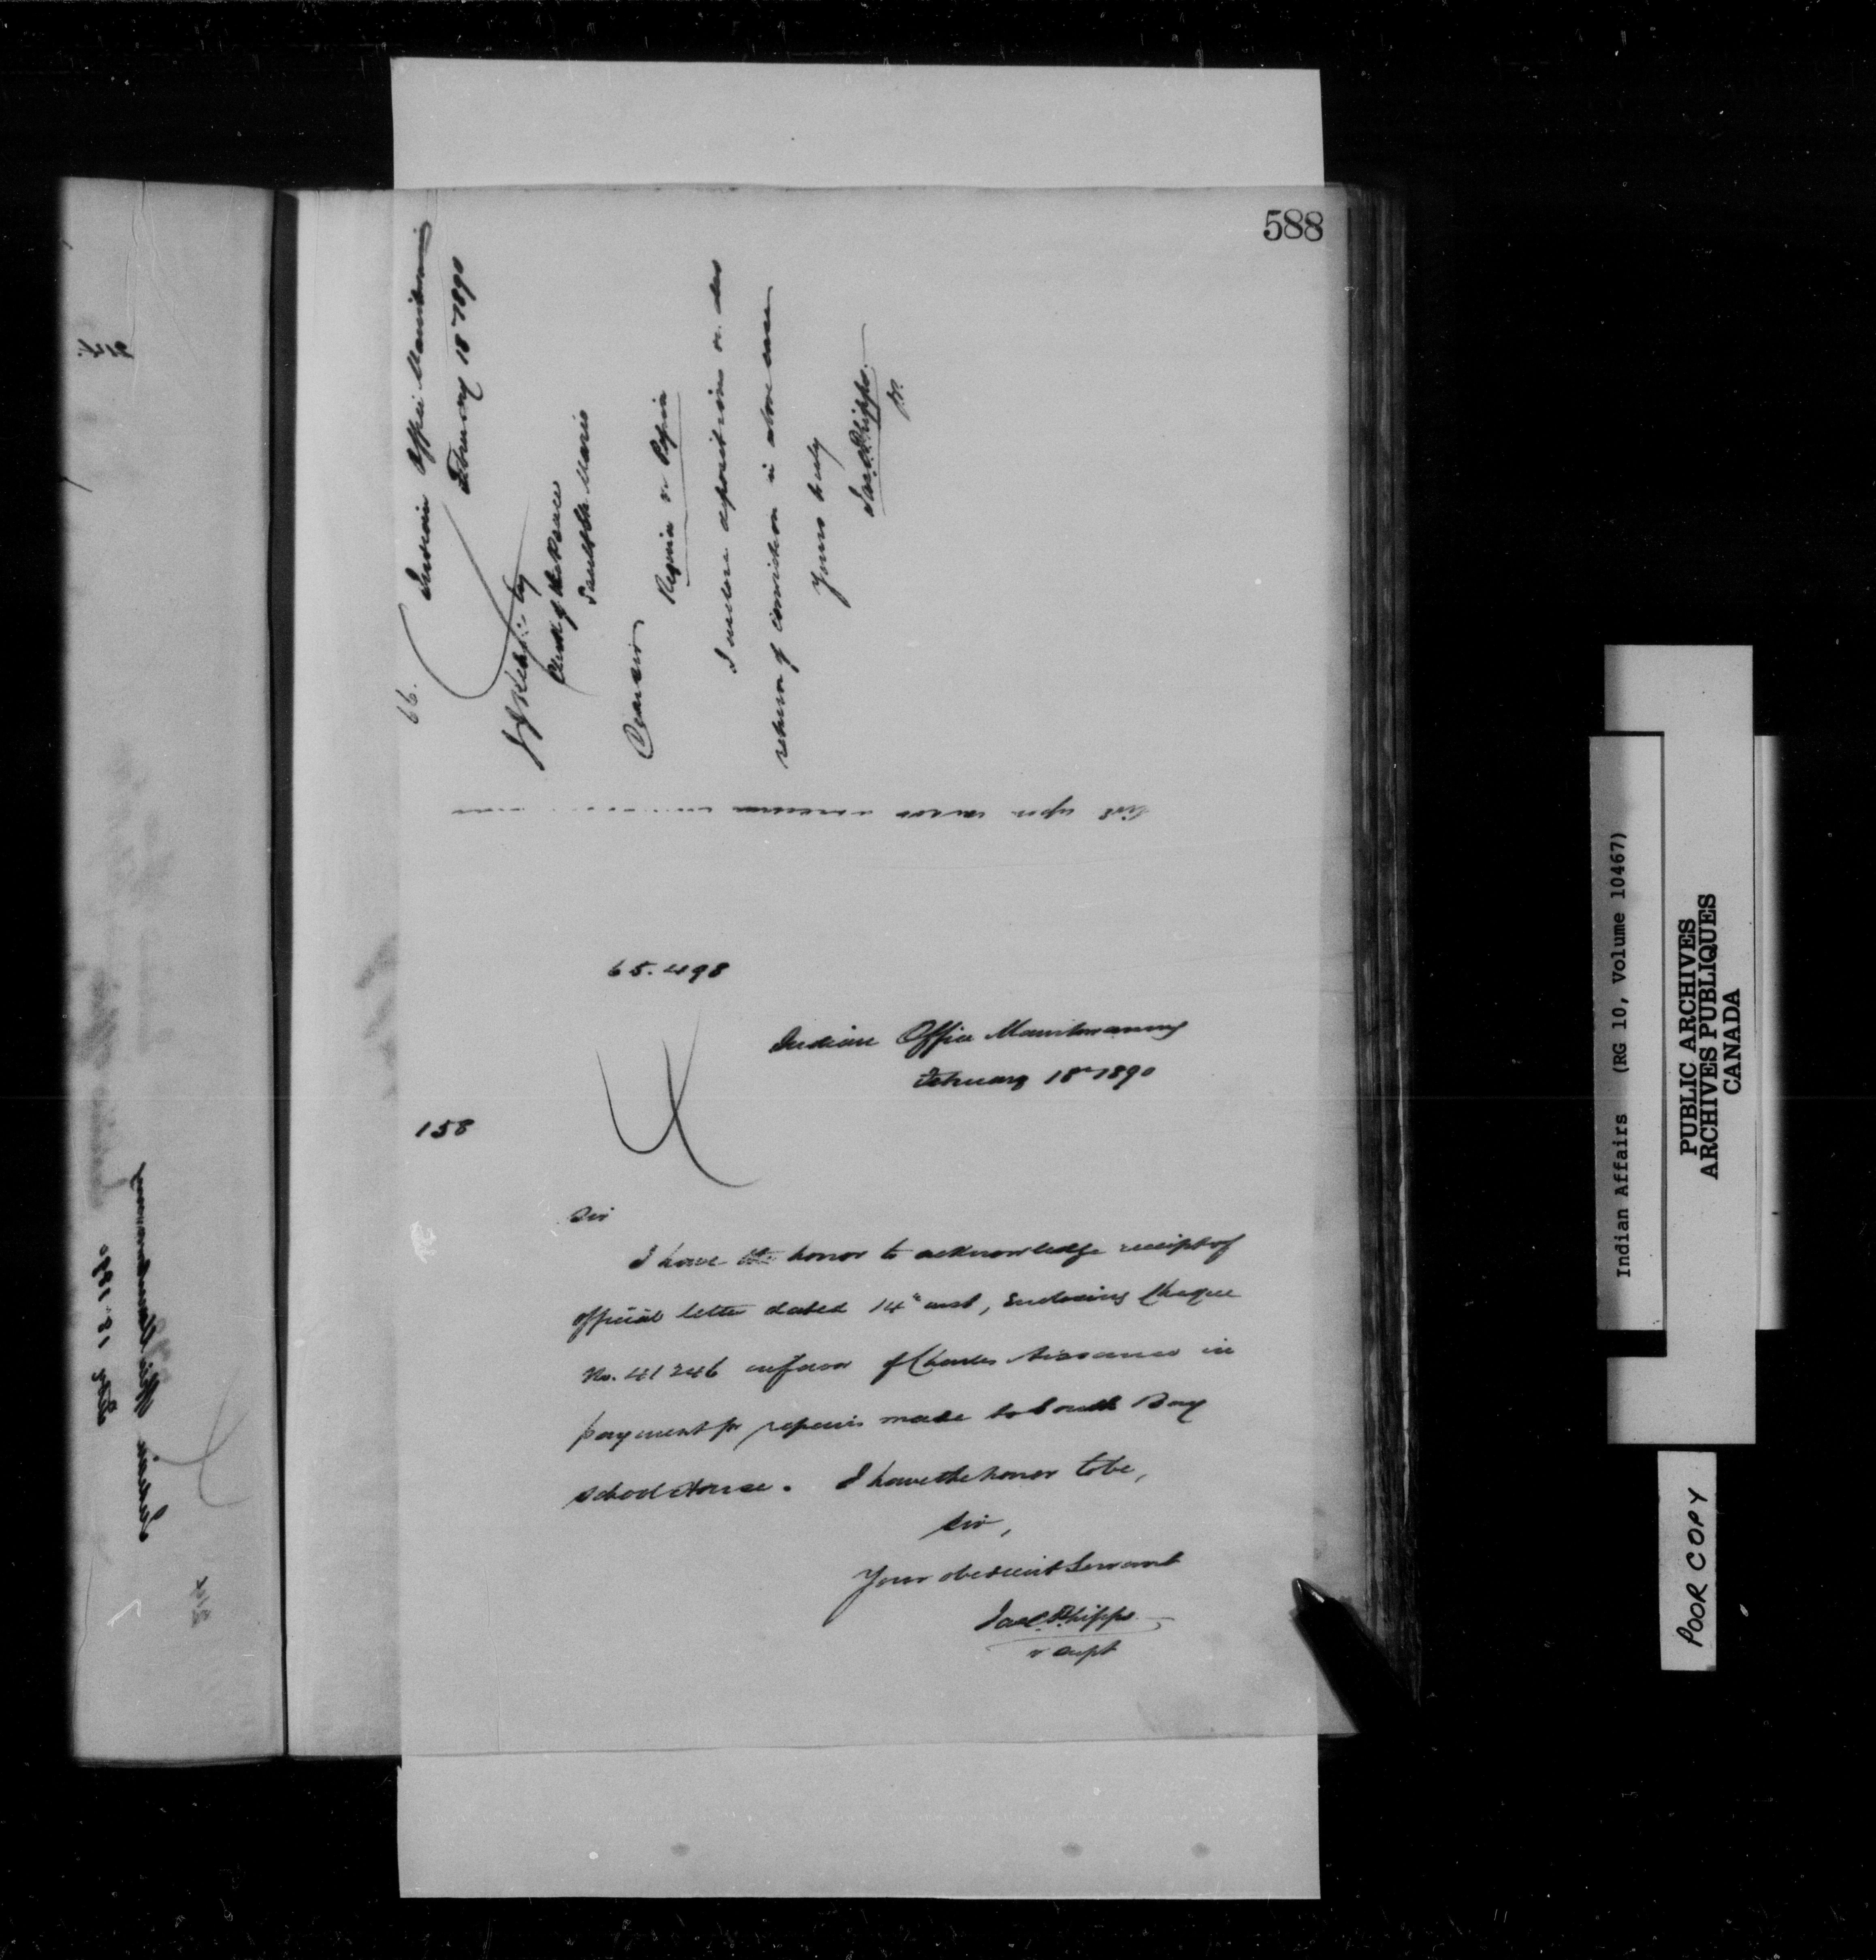 588
66.
Indian Office Manitowaning
February 18th 1890
Clerk of the Peace
Sault Ste Marie
Dear Sir
Regina v. Papin
I enclose depositions &
return of conviction in above case
Yours truly
Jas. C. Phipps.
65.498
Indian Office Manitowaning
February 18th 1890
158
Sir
I have the honor to acknowledge receipt of
official letter dated 14" inst, enclosing Cheque
No. 41246 in favor of Charles Aissance in
payment for repairs made to South Bay
school House. I have the honor to be,
Sir,
Your obedient Servant
Jas C. Phipps
v Supt
Indian Affairs (RG 10, Volume 10467)
PUBLIC ARCHIVES
ARCHIVES PUBLIQUES
CANADA
POOR COPY